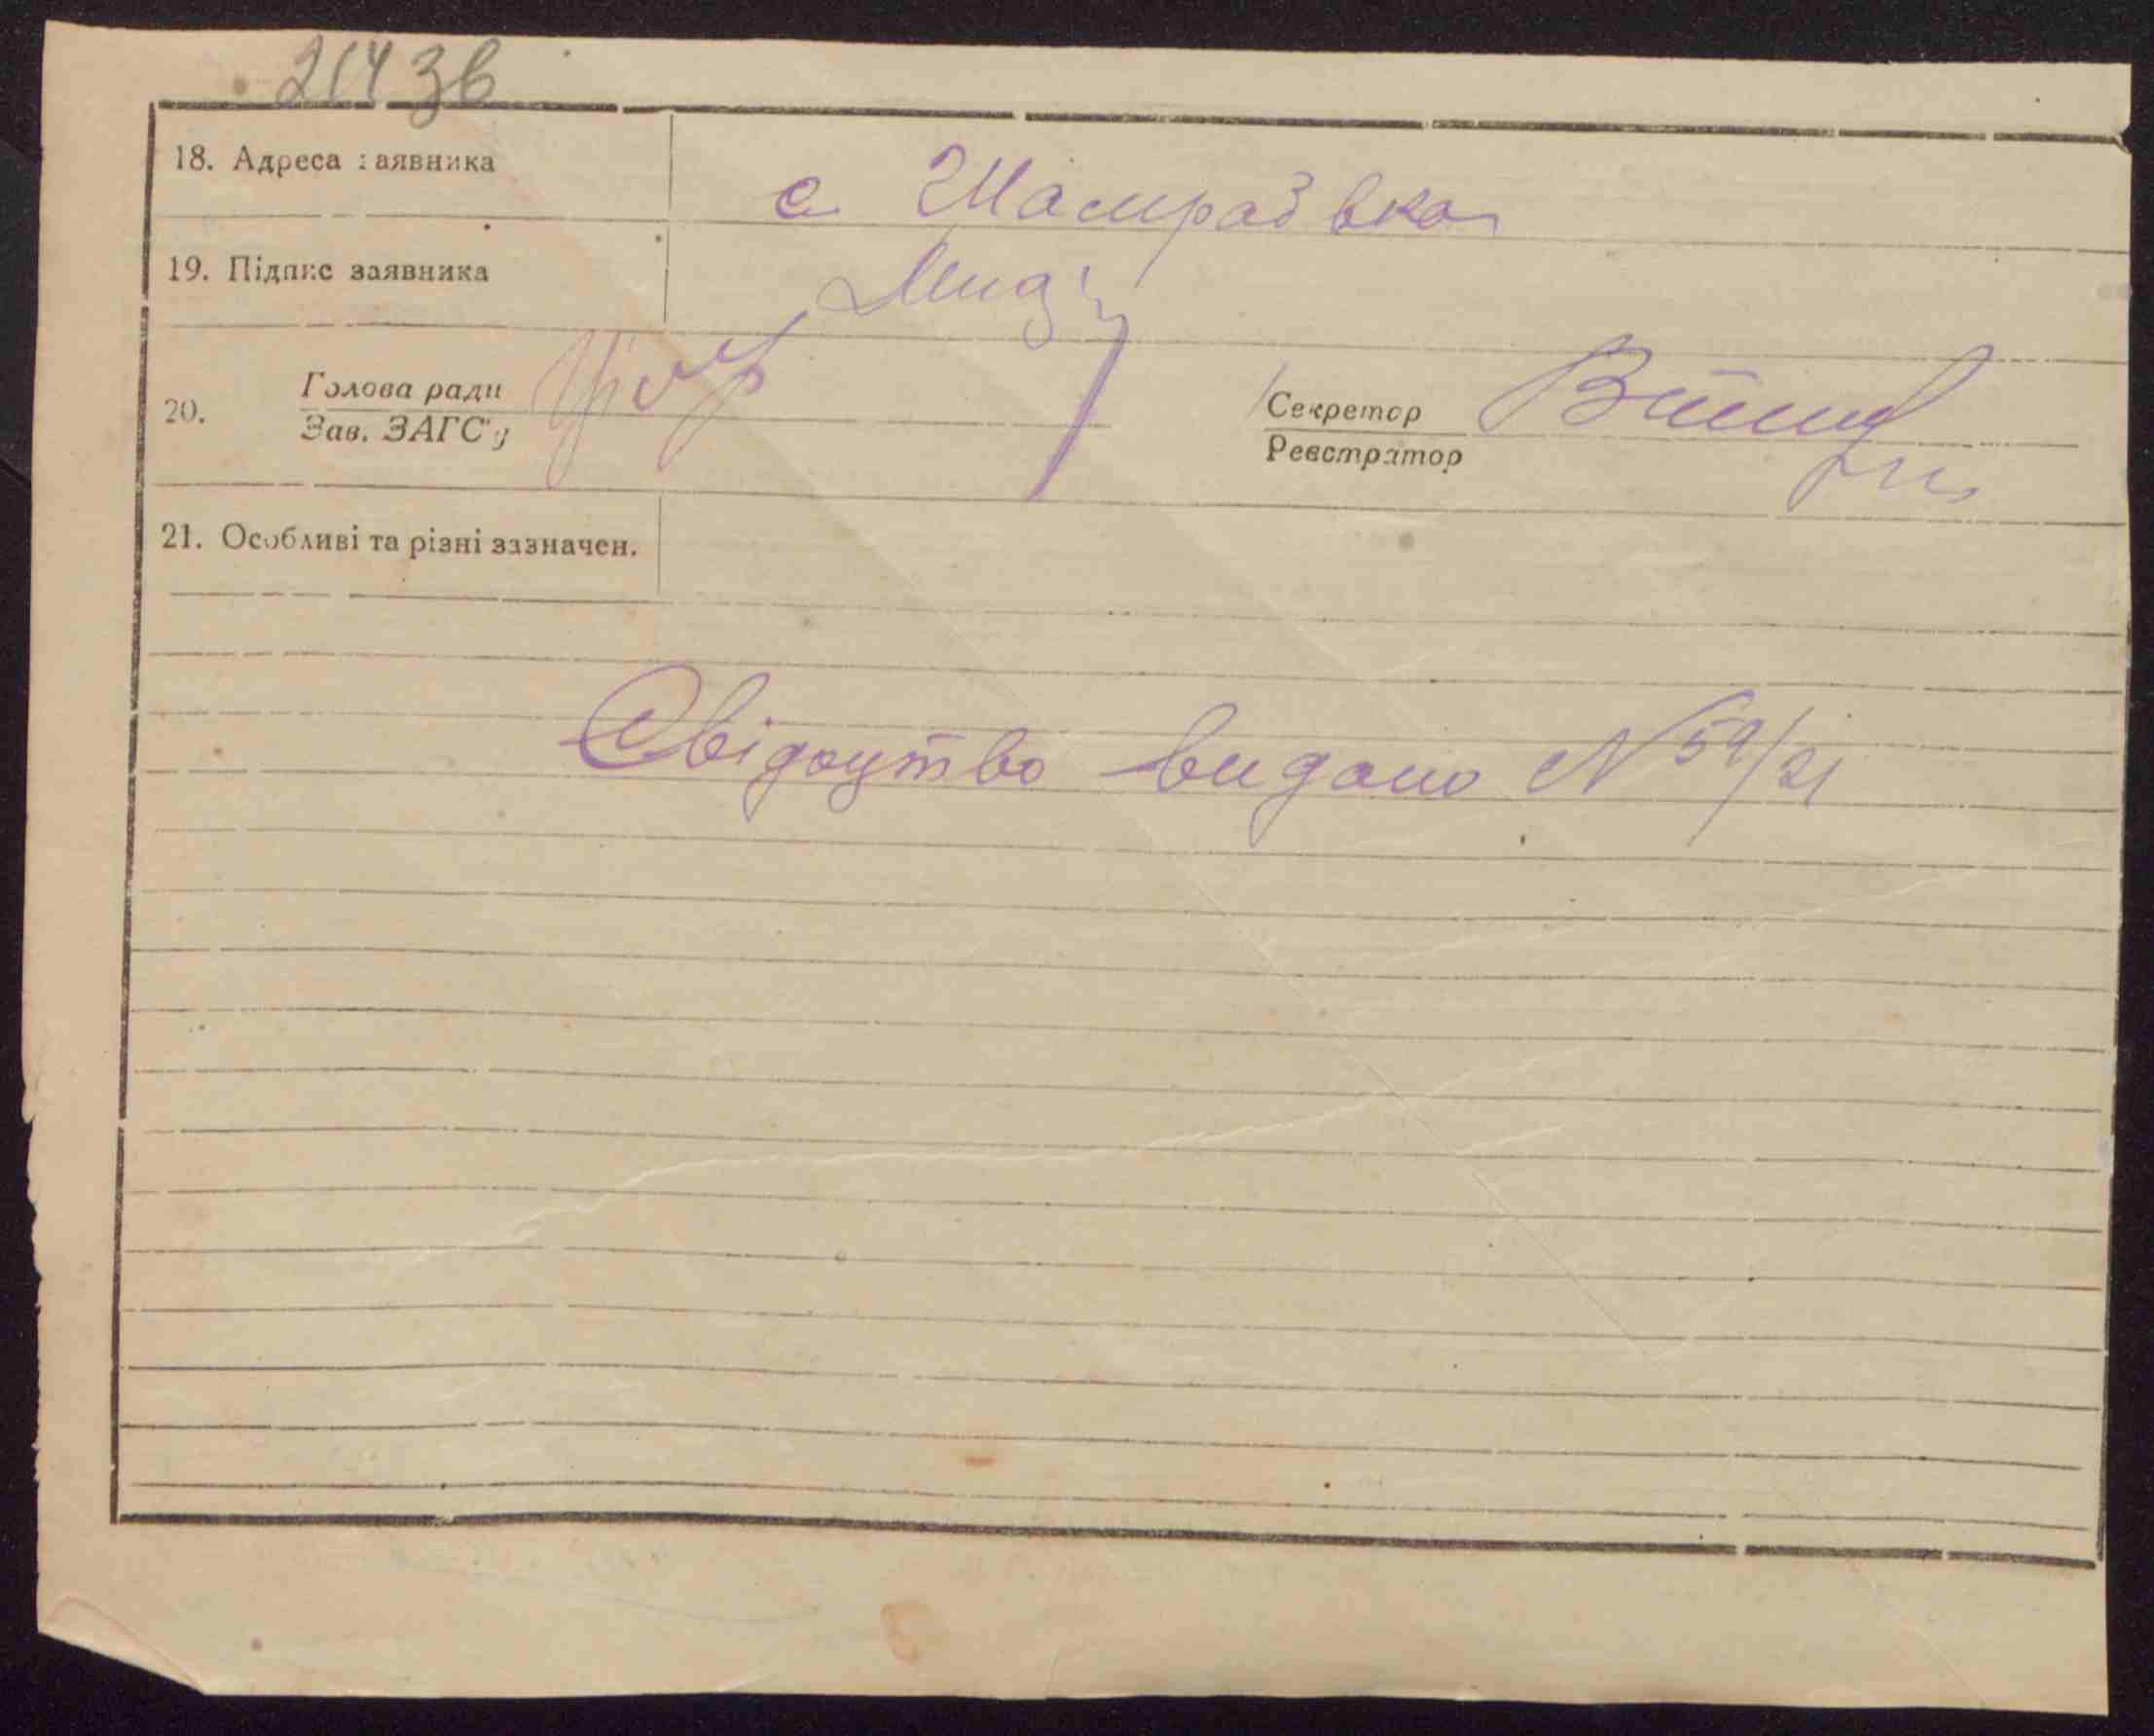 214 зв
18. Адреса заявника
с Шамраївка
19. Підпис заявника
20. Голова ради
Зав. ЗАГС'у
Секретар
Реєстратор
21. Особливі та різні зазначен.
Свідоцтво видано N 59/21